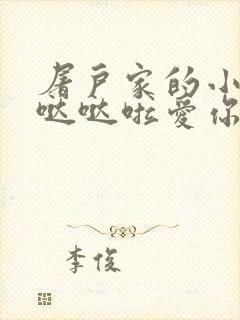 屠户家的小
哒哒啦爱你
李俊